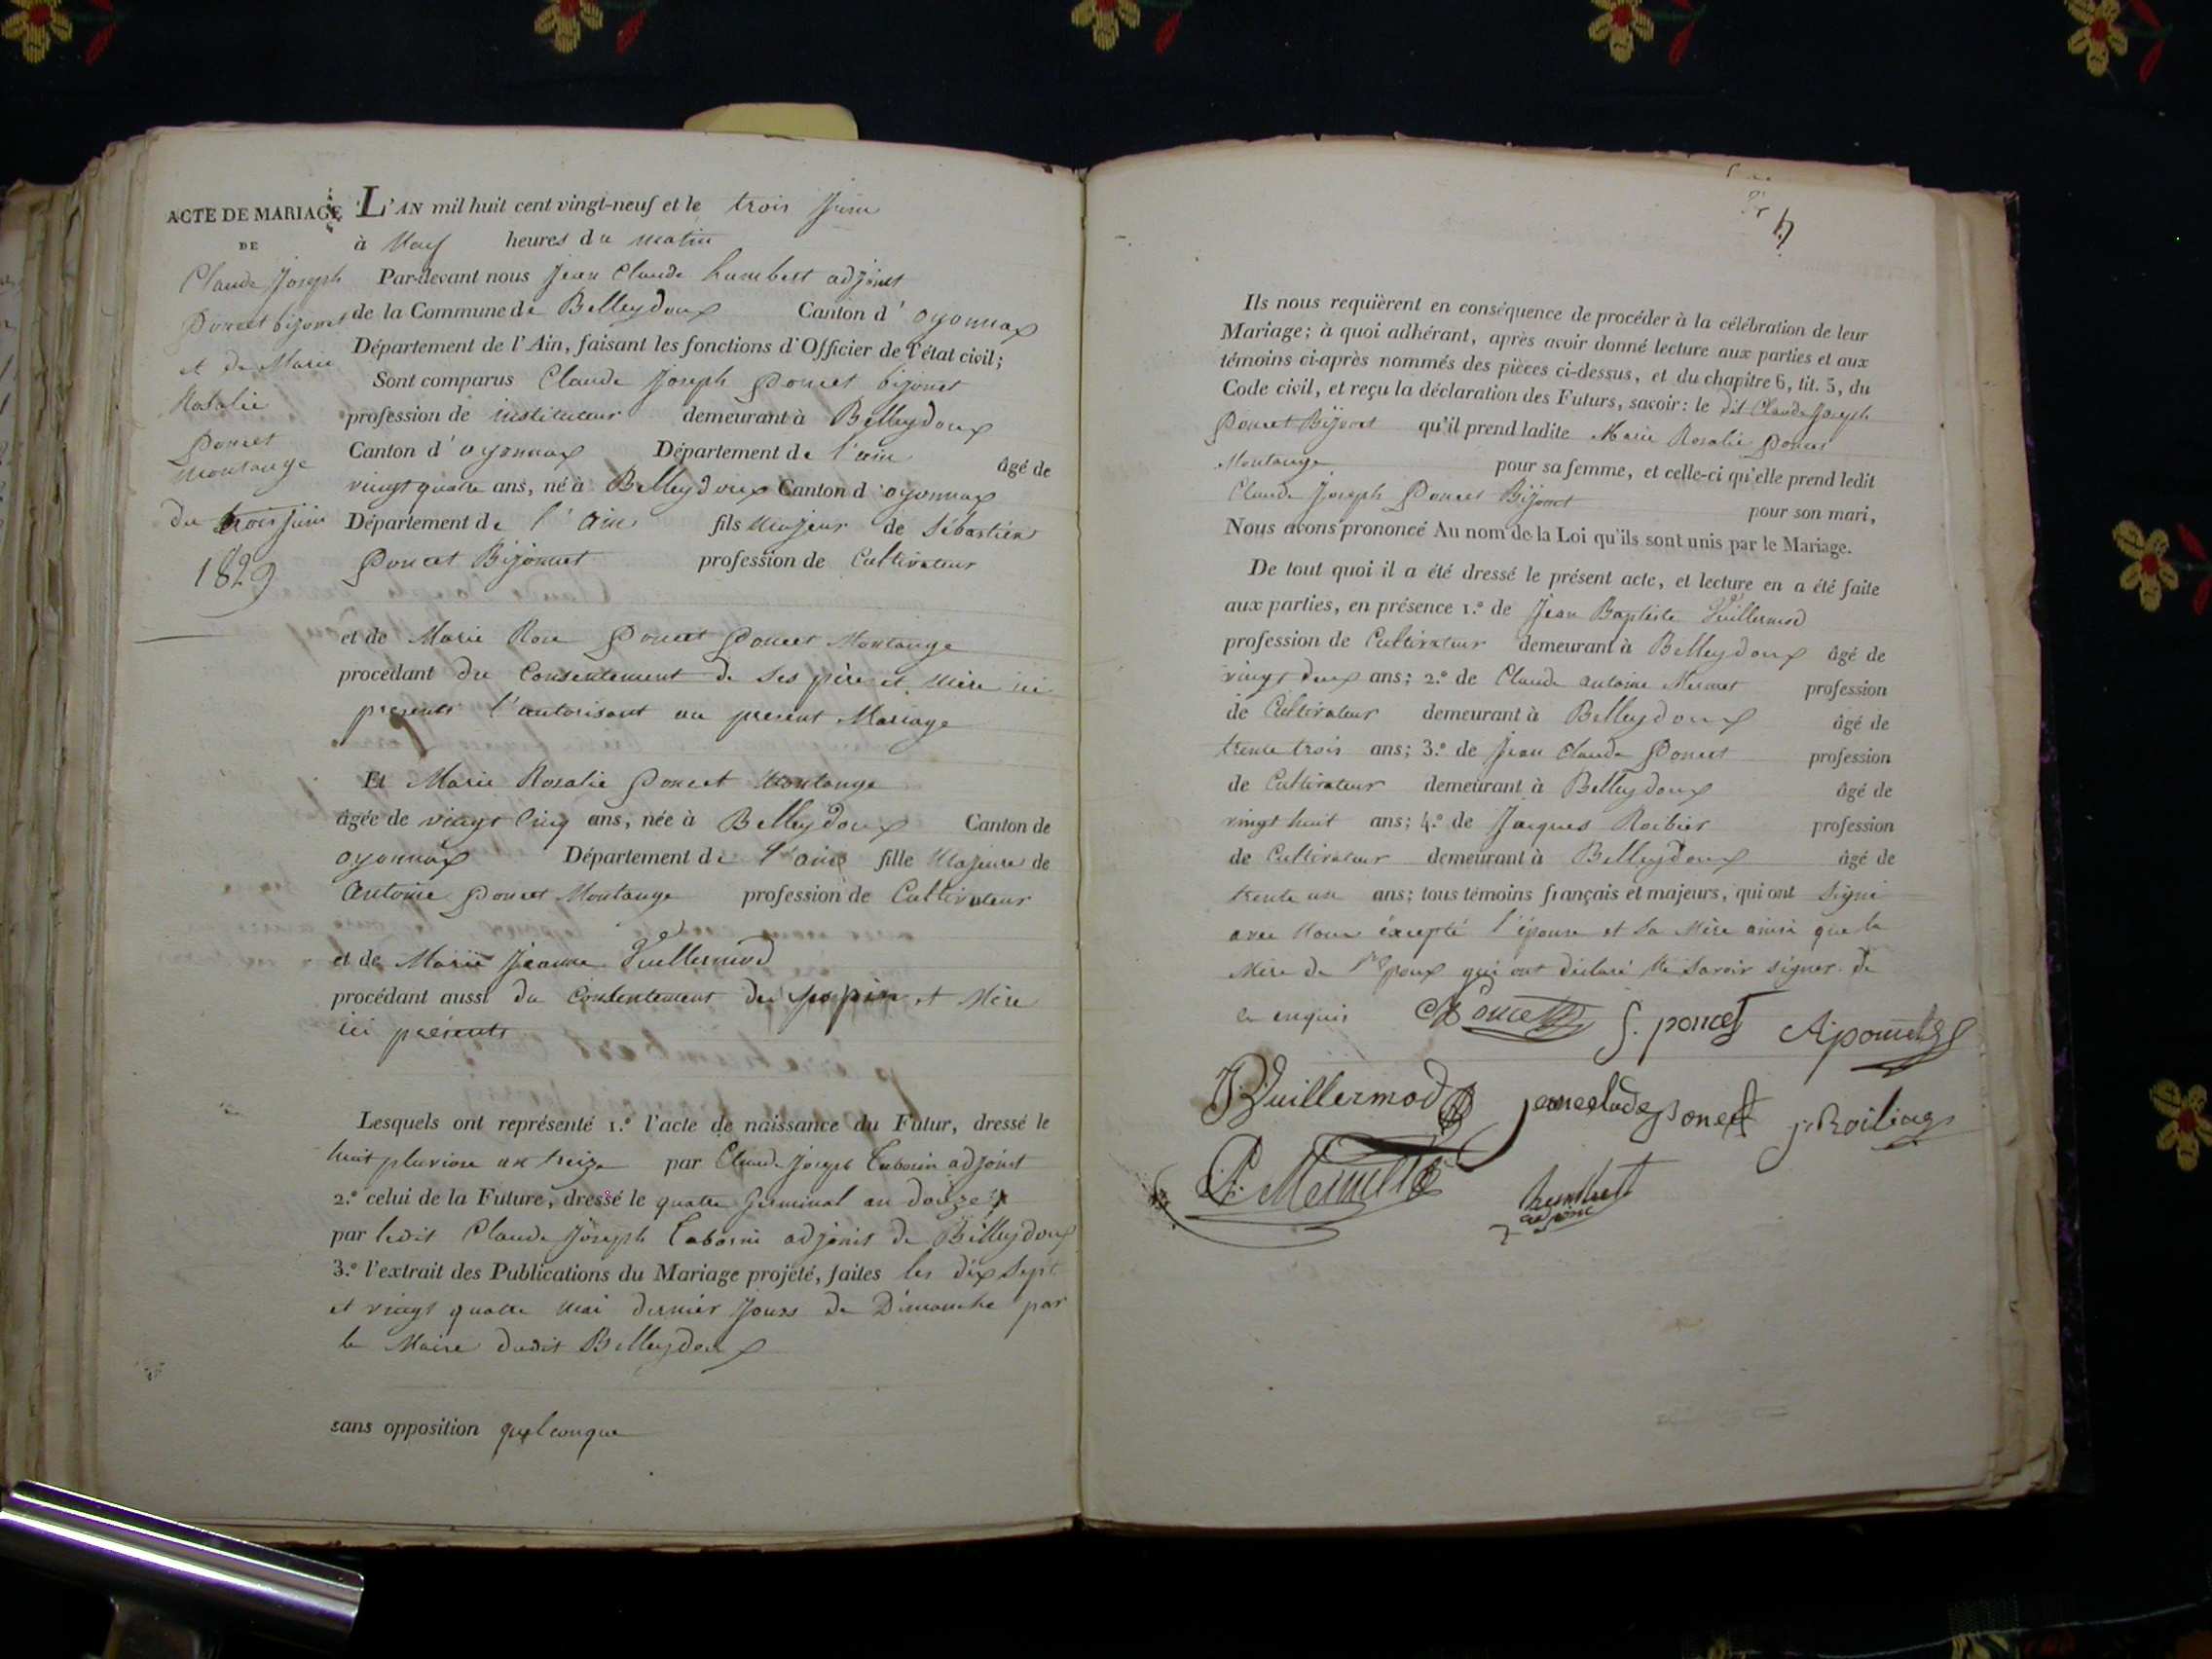 ACTE DE MARIAGE
DE
Claude Joseph
Poncet bijonet
et de Marie
Rosalie
Poncet
Montange
du trois juin
1829
L'AN mil huit cent vingt-neuf et le trois Juin
à Neuf heures du matin
Par-devant nous Jean Claude humbert adjoint
de la Commune de Belleydoux Canton d'oyonnax
Département de l'Ain, faisant les fonctions d'Officier de l'état civil;
Sont comparus Claude Joseph Poncet bijonet
profession de instituteur demeurant à Belleydoux
Canton d'oyonnax Département de l'ain âgé de
vingt quatre ans, né à Belleydoux Canton d'oyonnax
Département de l'Ain fils Majeur de Sébastien
Poncet Bijonnet profession de Cultivateur
et de Marie Rose Poncet Poncet Montange
procédant du Consentement de ses père et Mère ici
présents l'autorisant au present Mariage
Et Marie Rosalie Poncet Montange
âgée de vingt Cinq ans, née à Belleydoux Canton de
oyonnax Département de l'ain fille Majeure de
Antoine Poncet Montange profession de Cultivateur
et de Marie Jeanne Vuillermod
procédant aussi du Consentement de ses père et Mère
ici présents
Lesquels ont représenté 1.º l'acte de naissance du Futur, dressé le
huit pluviose an treize par Claude Joseph Tabourin adjoint
2.º celui de la Future, dressé le quatre Germinal an douze
par ledit Claude Joseph Tabourin adjoint de Belleydoux
3.º l'extrait des Publications du Mariage projeté, faites les dix sept
et vingt quatre mai dernier Jours de Dimanche par
le Maire dudit Belleydoux
sans opposition quelconque
Ils nous requièrent en conséquence de procéder à la célébration de leur
Mariage; à quoi adhérant, après avoir donné lecture aux parties et aux
témoins ci-après nommés des pièces ci-dessus, et du chapitre 6, tit. 5, du
Code civil, et reçu la déclaration des Futurs, savoir: le dit Claude Joseph
Poncet Bijonet qu'il prend ladite Marie Rosalie Poncet
Montange pour sa femme, et celle-ci qu'elle prend ledit
Claude Joseph Poncet Bijonet pour son mari,
Nous avons prononcé Au nom de la Loi qu'ils sont unis par le Mariage.
De tout quoi il a été dressé le présent acte, et lecture en a été faite
aux parties, en présence 1.º de Jean Baptiste Vuillermod
profession de Cultivateur demeurant à Belleydoux âgé de
vingt deux ans; 2.º de Claude antoine Mermet profession
de Cultivateur demeurant à Belleydoux âgé de
trente trois ans; 3.º de Jean Claude Poncet profession
de Cultivateur demeurant à Belleydoux âgé de
vingt huit ans; 4.º de Jacques Roibier profession
de Cultivateur demeurant à Belleydoux âgé de
trente un ans; tous témoins français et majeurs, qui ont signé
avec Nous éxcepté l'épouse et sa Mère ainsi que la
Mère de l'Epoux qui ont déclaré ne savoir signer de
ce enquis Poncet S. poncet A poncet
Vuillermod jeanclade Poncet
humbert
adjoint